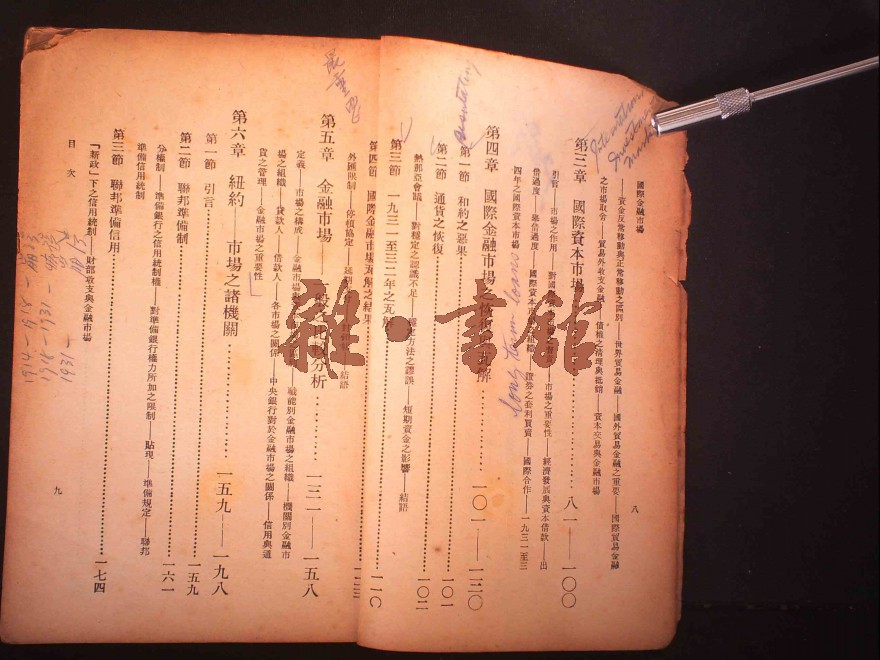 國際金融市場
八
——資金反常移動與正常移動之區別——世界貿易金融——國外貿易金融之重要——國際貿易金融
之市場取舍——貿易外收支金融——債權之清理與抵銷——資本交易與金融市場
第三章 國際資本市場 八一——一〇〇
引言——市場之作用——市場之重要性——經濟發展與資本借款——出
借過度——舉借過度——國際資本市——證券之套利買賣——國際合作——一九三一至三
四年之國際資本市場
第四章 國際金融市場之恢復解 一〇一——一三〇
第一節 和約之惡果 一〇一
第二節 通貨之恢復 一〇二
熱那亞會議——對穩定之認識不足——方法之謬誤——短期資金之影響——結語
第三節 一九三一至三二年之瓦解 一一〇
第四節 國際金融市場瓦解之結果
外匯限制——停債協定——結語
第五章 金融市場——分析 一三一——一五八
定義——市場之構成——金融市場——職能別金融市場之組織——機關別金融市
場之組織——貸款人——借款人——各市場之關係——中央銀行對於金融市場之關係——信用與通
貨之管理——金融市場之重要性
第六章 紐約——市場之諸機關 一五九——一九八
第一節 引言 一五九
第二節 聯邦準備制 一六一
分權制——準備銀行之信用統制權——對準備銀行權力所加之限制——貼現——準備規定——聯邦
準備信用統制
第三節 聯邦準備信用 一七四
「新政」下之信用統制——財部收支與金融市場
目次
九
long term loans
1914-1918-
1918-1931-
1931-
雜·書館